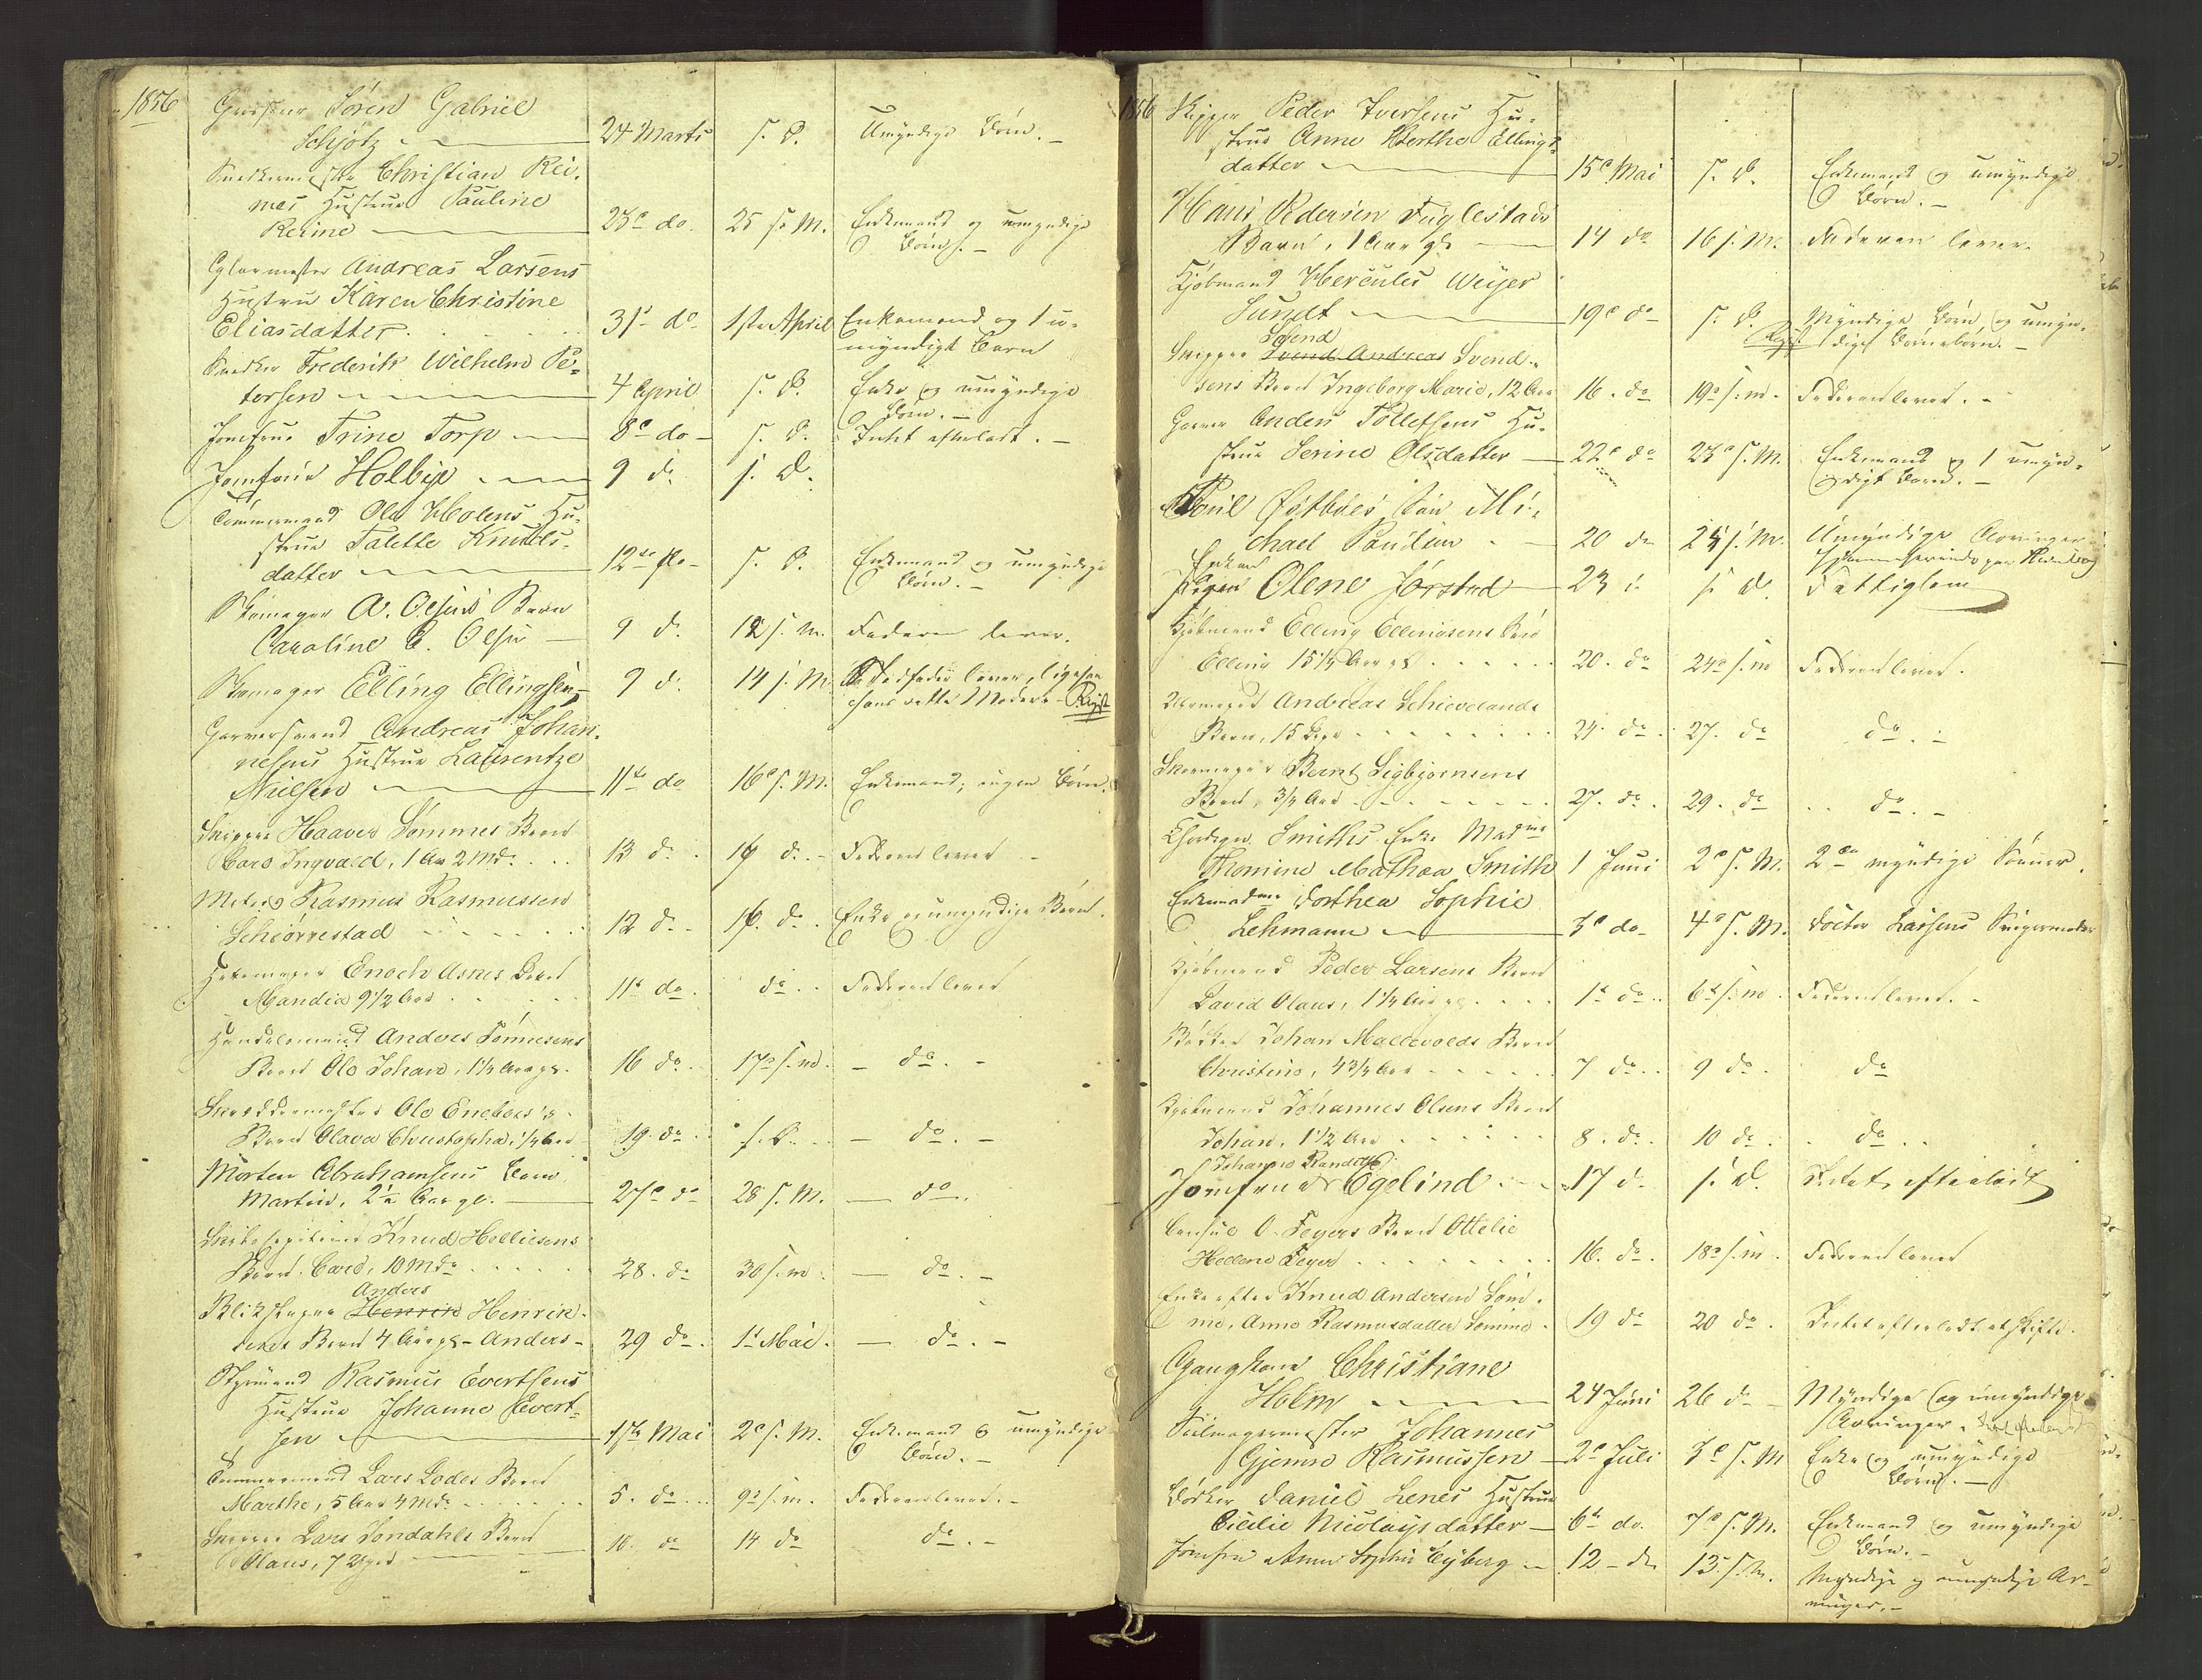 1856
Søren Gabriel
Schjøtz 24 Marts s. D. Umyndige Børn.
Snedkermester Christian Rei-
mes Hustrue Pauline
Reime 23de do. 25 s. M. Enkemand og umyndige
Børn.
Glarmester Andreas Larsens
Hustru Karen Christine
Eliasdatter 31te do 1ste April Enkemand og 1 u-
myndigt Barn
Snedker Frederik Wilhelm Pe-
tersen 4 April s. D. Enke og umyndige
Børn.
Jomfrue Trine Torp 8de do s. D. Intet efterladt.
Jomfrue Holbye 9 do s. D.
Tømmermand Ole Holens Hu-
strue Talette Knuds-
datter 12te do s. D. Enkemand og umyndige
Børn.
Skomager A. Olsens Barn
Caroline C. Olsen 9 do 12 s. M. Faderen lever.
Skomager Elling Ellingsen 9 do 14 s. M. Stedfader lever, ligesaa
hans rette Moder
Garversvend Andreas Johan-
nesens Hustrue Laurentze
Nielsen 11te do 16de s. M. Enkemand, ingen Børn.
Skipper Haaver Sømmes Barn
Lars Ingvald, 1 Aar 2 Mdr. 13 do 17 do Faderen lever
Rasmus Rasmussen
Schiørrestad 12 do 16 do Enke og umyndige Børn.
Enoch Asnes Barn
Mandia 9 1/2 Aar 11te do do Faderen lever
Handelsmand Anders Tønnesens
Barn Ole Johan, 1 1/2 Aar gl. 16 do 17de s. M. do
Skræddermester Ole Eneboes
Barn Olava Christopha, 1/2 Aar 19 do s. D. do
Morten Abrahamsens Barn
Martin, 2 Aar gl. 27de do 28 s. M. do
Skibskapitain Knud Helliesens
Barn Carl, 10 Mdr 28. do 30 s. M. do
Anders
Blikslager Henrik Henrik-
sens Barn 4 Aar gl. Anders 29 do 1te Mai do
Styrmand Rasmus Evertsens
Hustrue Johanne Evert-
sen 1ste Mai 2de s. M. Enkemand og umyndige
Børn.
Tømmermand Lars Lodes Barn
Marthe, 5 Aar 4 Mdr 5. do 9de s. M. Faderen lever.
Skipper Lars Sondahls Barn
Olaus, 7 Uger 10. do 14 do do
1856 Skipper Peder Iversens Hu-
strue Anne Berthe Ellings-
datter 15de Mai s. D. Enkemand og umyndige
Børn.
Hans Pedersen Fuglestads
Barn, 1 Aar gl. 14 do 16 s. M. Faderen lever.
Kjøbmand Hercules Weyer
Sundt 19de do s. D. Myndige Børn og umyn-
dige Børnebørn.
Svend
Skipper Svend Andreas Svend-
sens Barn Ingeborg Marie, 12 Aar 16. do 19de s. M. Faderen lever.
Garver Anders Tollefsens Hu-
strue Serine Olsdatter 22de do 23de s. M. Enkemand og 1 umyn-
digt Barn.
Poul Østbøes Søn Mi-
chael Paulin 20 do 24 s. M. Umyndige Arvinger
Enken
Pigen Olene Jørstad 23 do s. D. Fattiglem
Kjøbmand Elling Ellingsens Søn
Elling 15 1/2 Aar gl. 20. do 24de s. M. Faderen lever.
Uhrmager Andreas Schievelands
Barn, 15 Dage 24. do 27. do do
Skomager Bernt Sigbjørnsens
Barn, 3/4 Aar 27. do 29. do do
Smiths Enke Madme
Thomine Mathea Smith 1 Juni 2de s. M. 2de myndige Sønner.
Enkemadme Dorthea Sophie
Lehmann 3de do 4de s. M. Doctor Larsens Svigermoder
Kjøbmand Peder Larsens Barn
David Olaus, 1 1/2 Aar gl. 1te do 6te s. M. Faderen lever.
Bødker Johan Mallevolds Barn
Christine, 4 3/4 Aar 7 do 9 do do
Kjøbmand Johannes Olsens Barn
Johan, 1 1/2 Aar 8. do 10 do do
Johanne
Jomfrue Egelind 17 do s. D. Intet efterladt
Consul O. Feyers Barn Ottelie
Hellene Feyer 16. do 18de s. M. Faderen lever
Enke efter Knud Andersen Søm-
me, Anne Rasmusdatter Sømme 19 do 20 do Intet efterladt at skifte.
Gangkone Christiane
Holm 24 Juni 26 do Myndige og umyndige
Arvinger.
Seilmagermester Johannes
Gjemre Rasmussen 2de Juli 3de s. M. Enke og umyndige
Børn.
Bødker Daniel Lenes Hustrue
Cicilie Nicolaysdatter 6te do. 7de s. M. Enkemand og umyndige
Børn.
Jomfru Anne Sophie Eyberg 12 do 13 s. M. Myndige og umyndige Ar-
vinger.